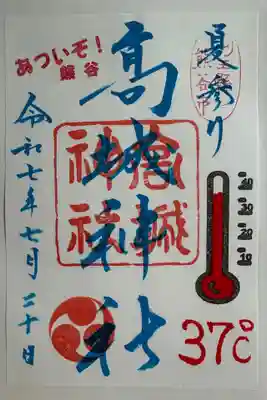 夏参り
高城神社
高城神社
あついぞ！
熊谷
令和七年七月二十日
40
30
20
10
℃
37℃